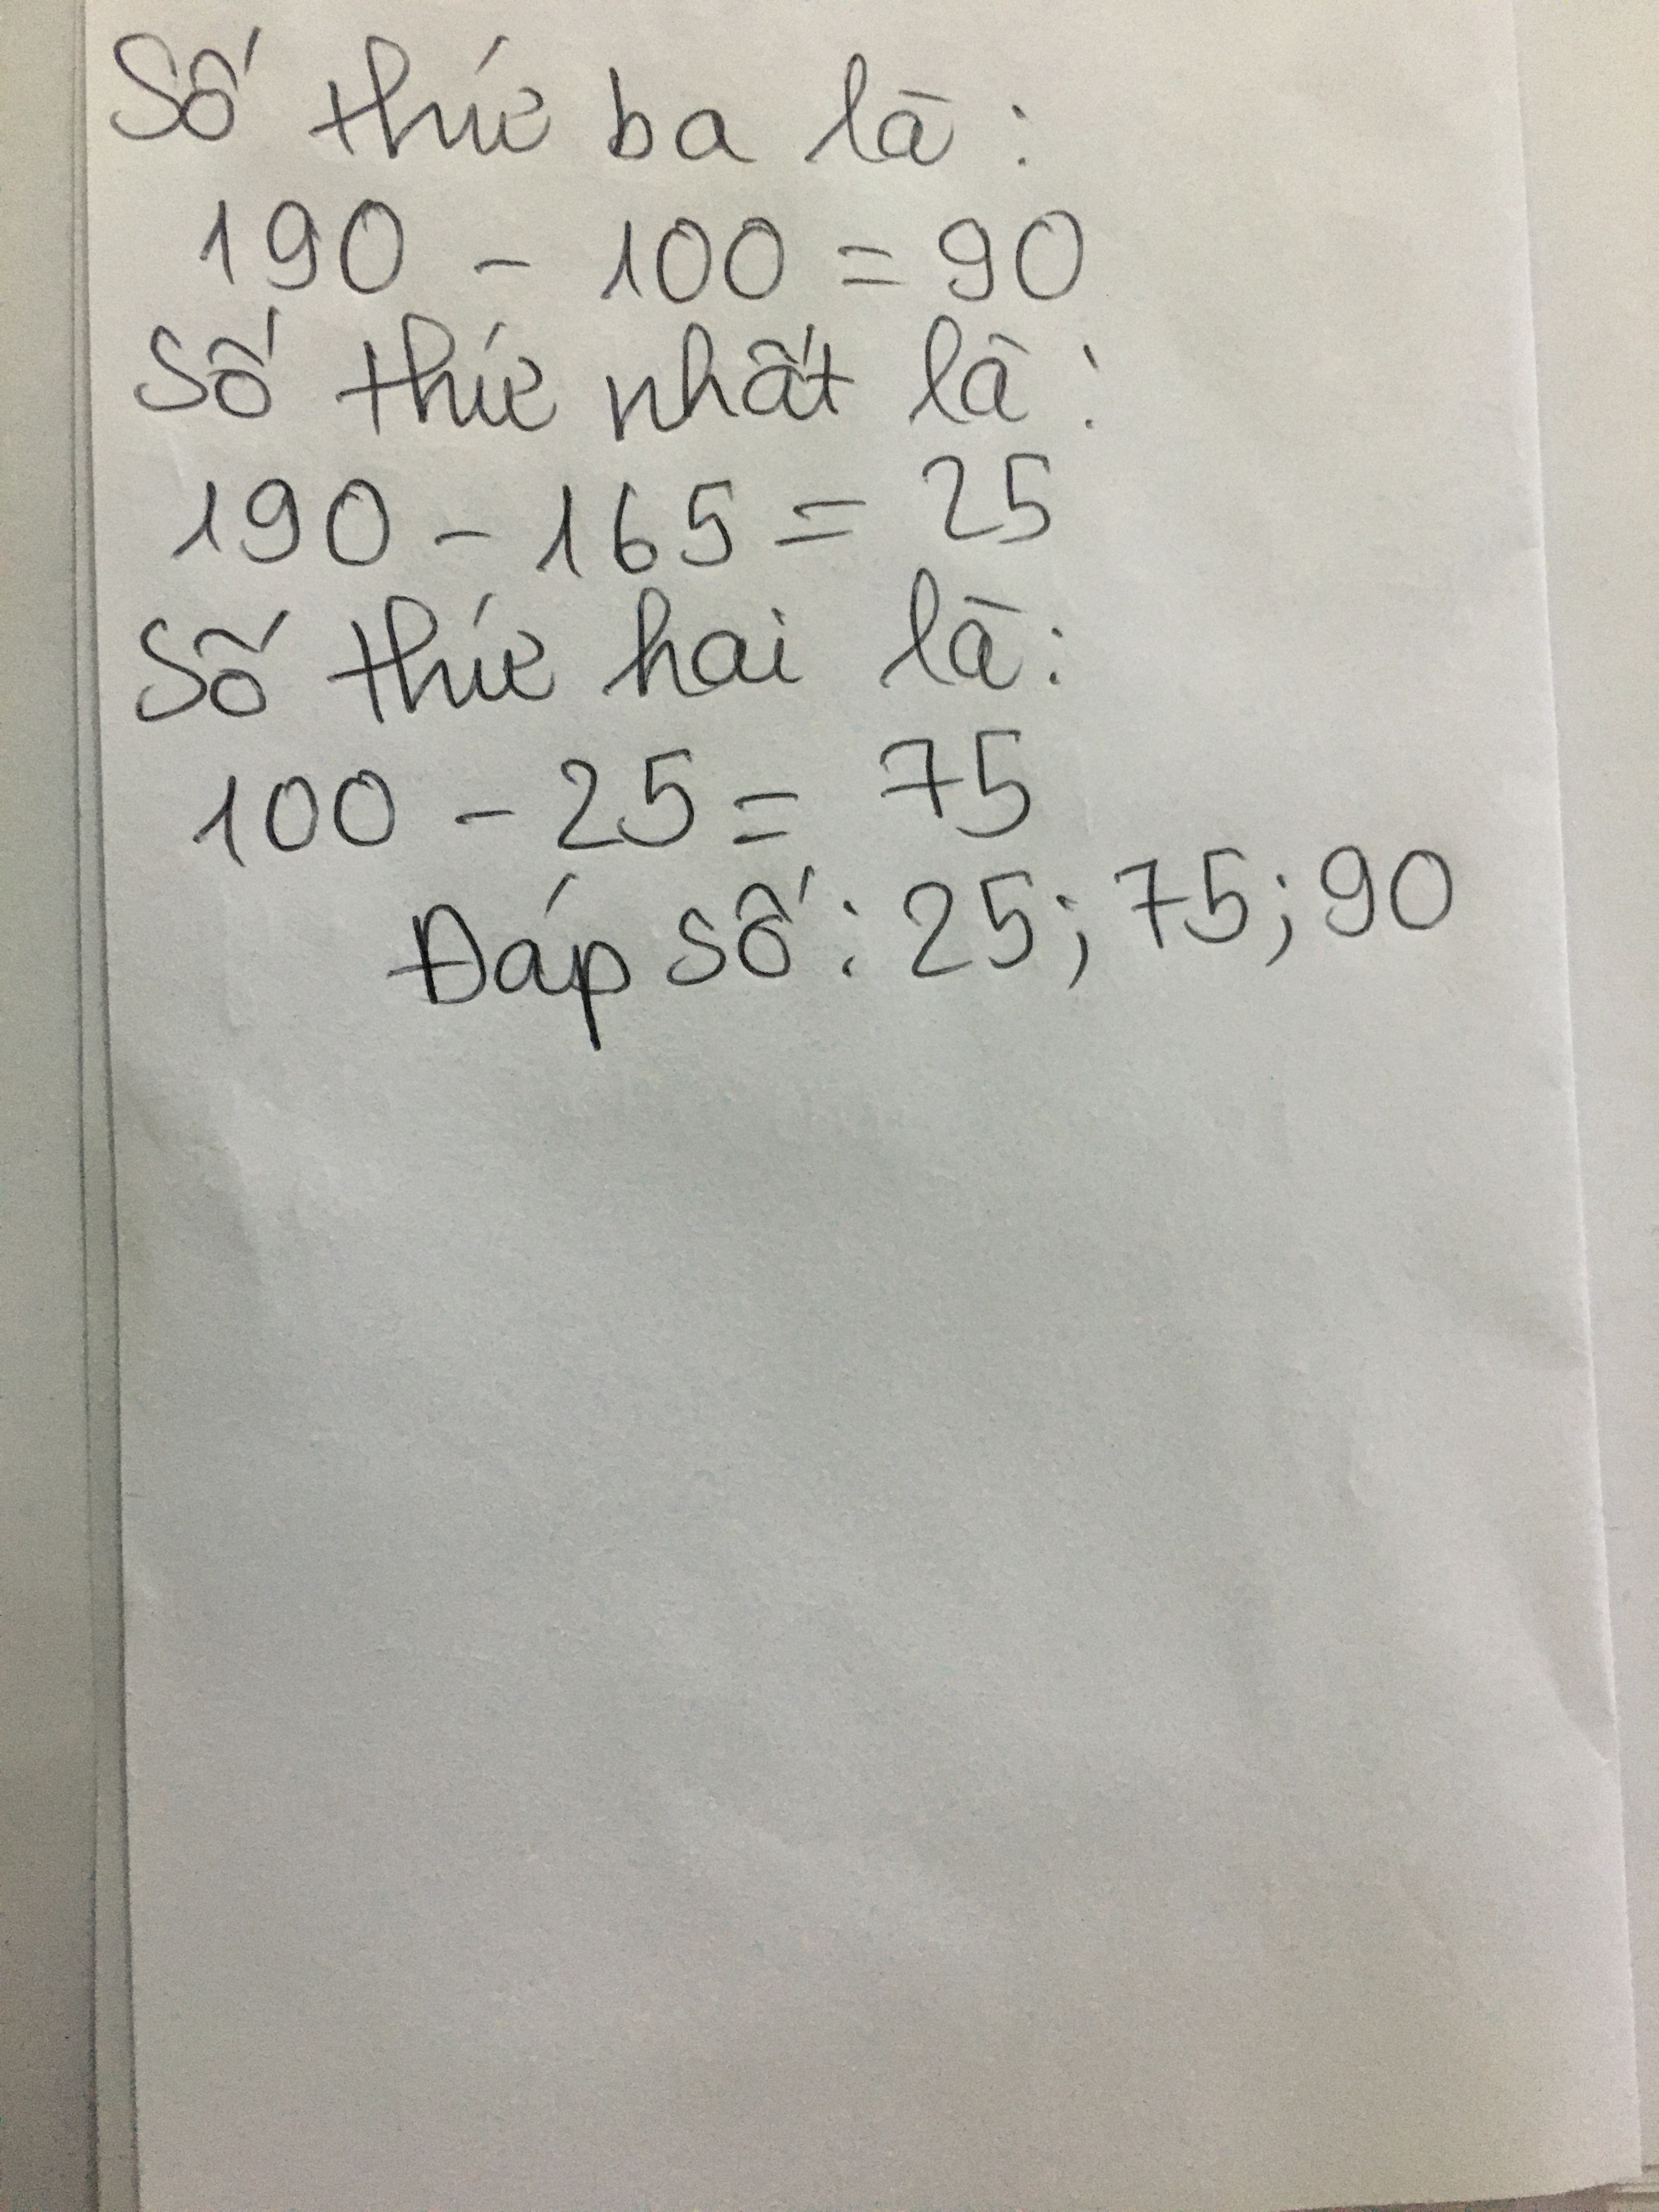 Số thức ba là:
190 - 100 = 90
Số thức nhất là:
190 - 165 = 25
Số thức hai là:
100 - 25 = 75
Đáp số: 25; 75; 90